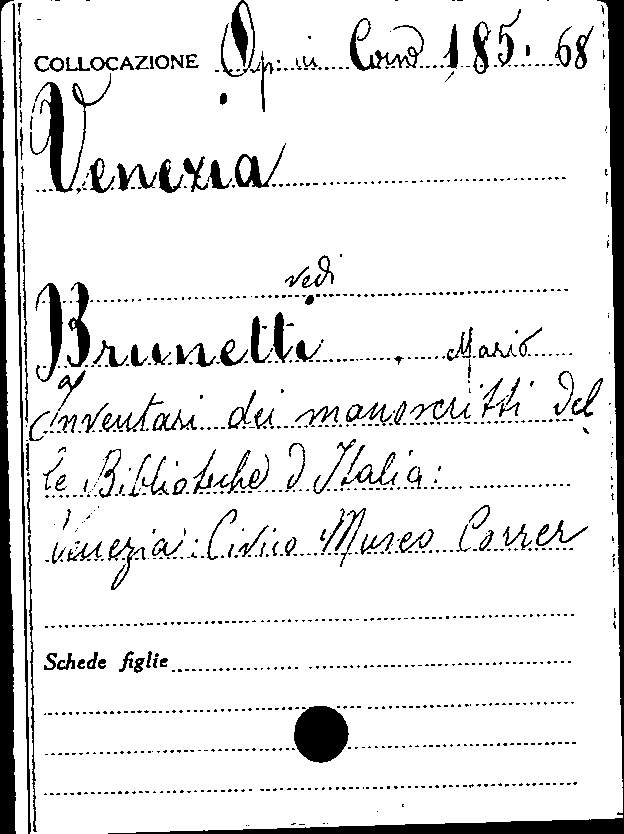 COLLOCAZIONE Op. in Corso 185. 68
Venezia
vedi
Brunetti, Mario
Inventari dei manoscritti del
le Biblioteche d'Italia:
Venezia: Civico Museo Correr
Schede figlie